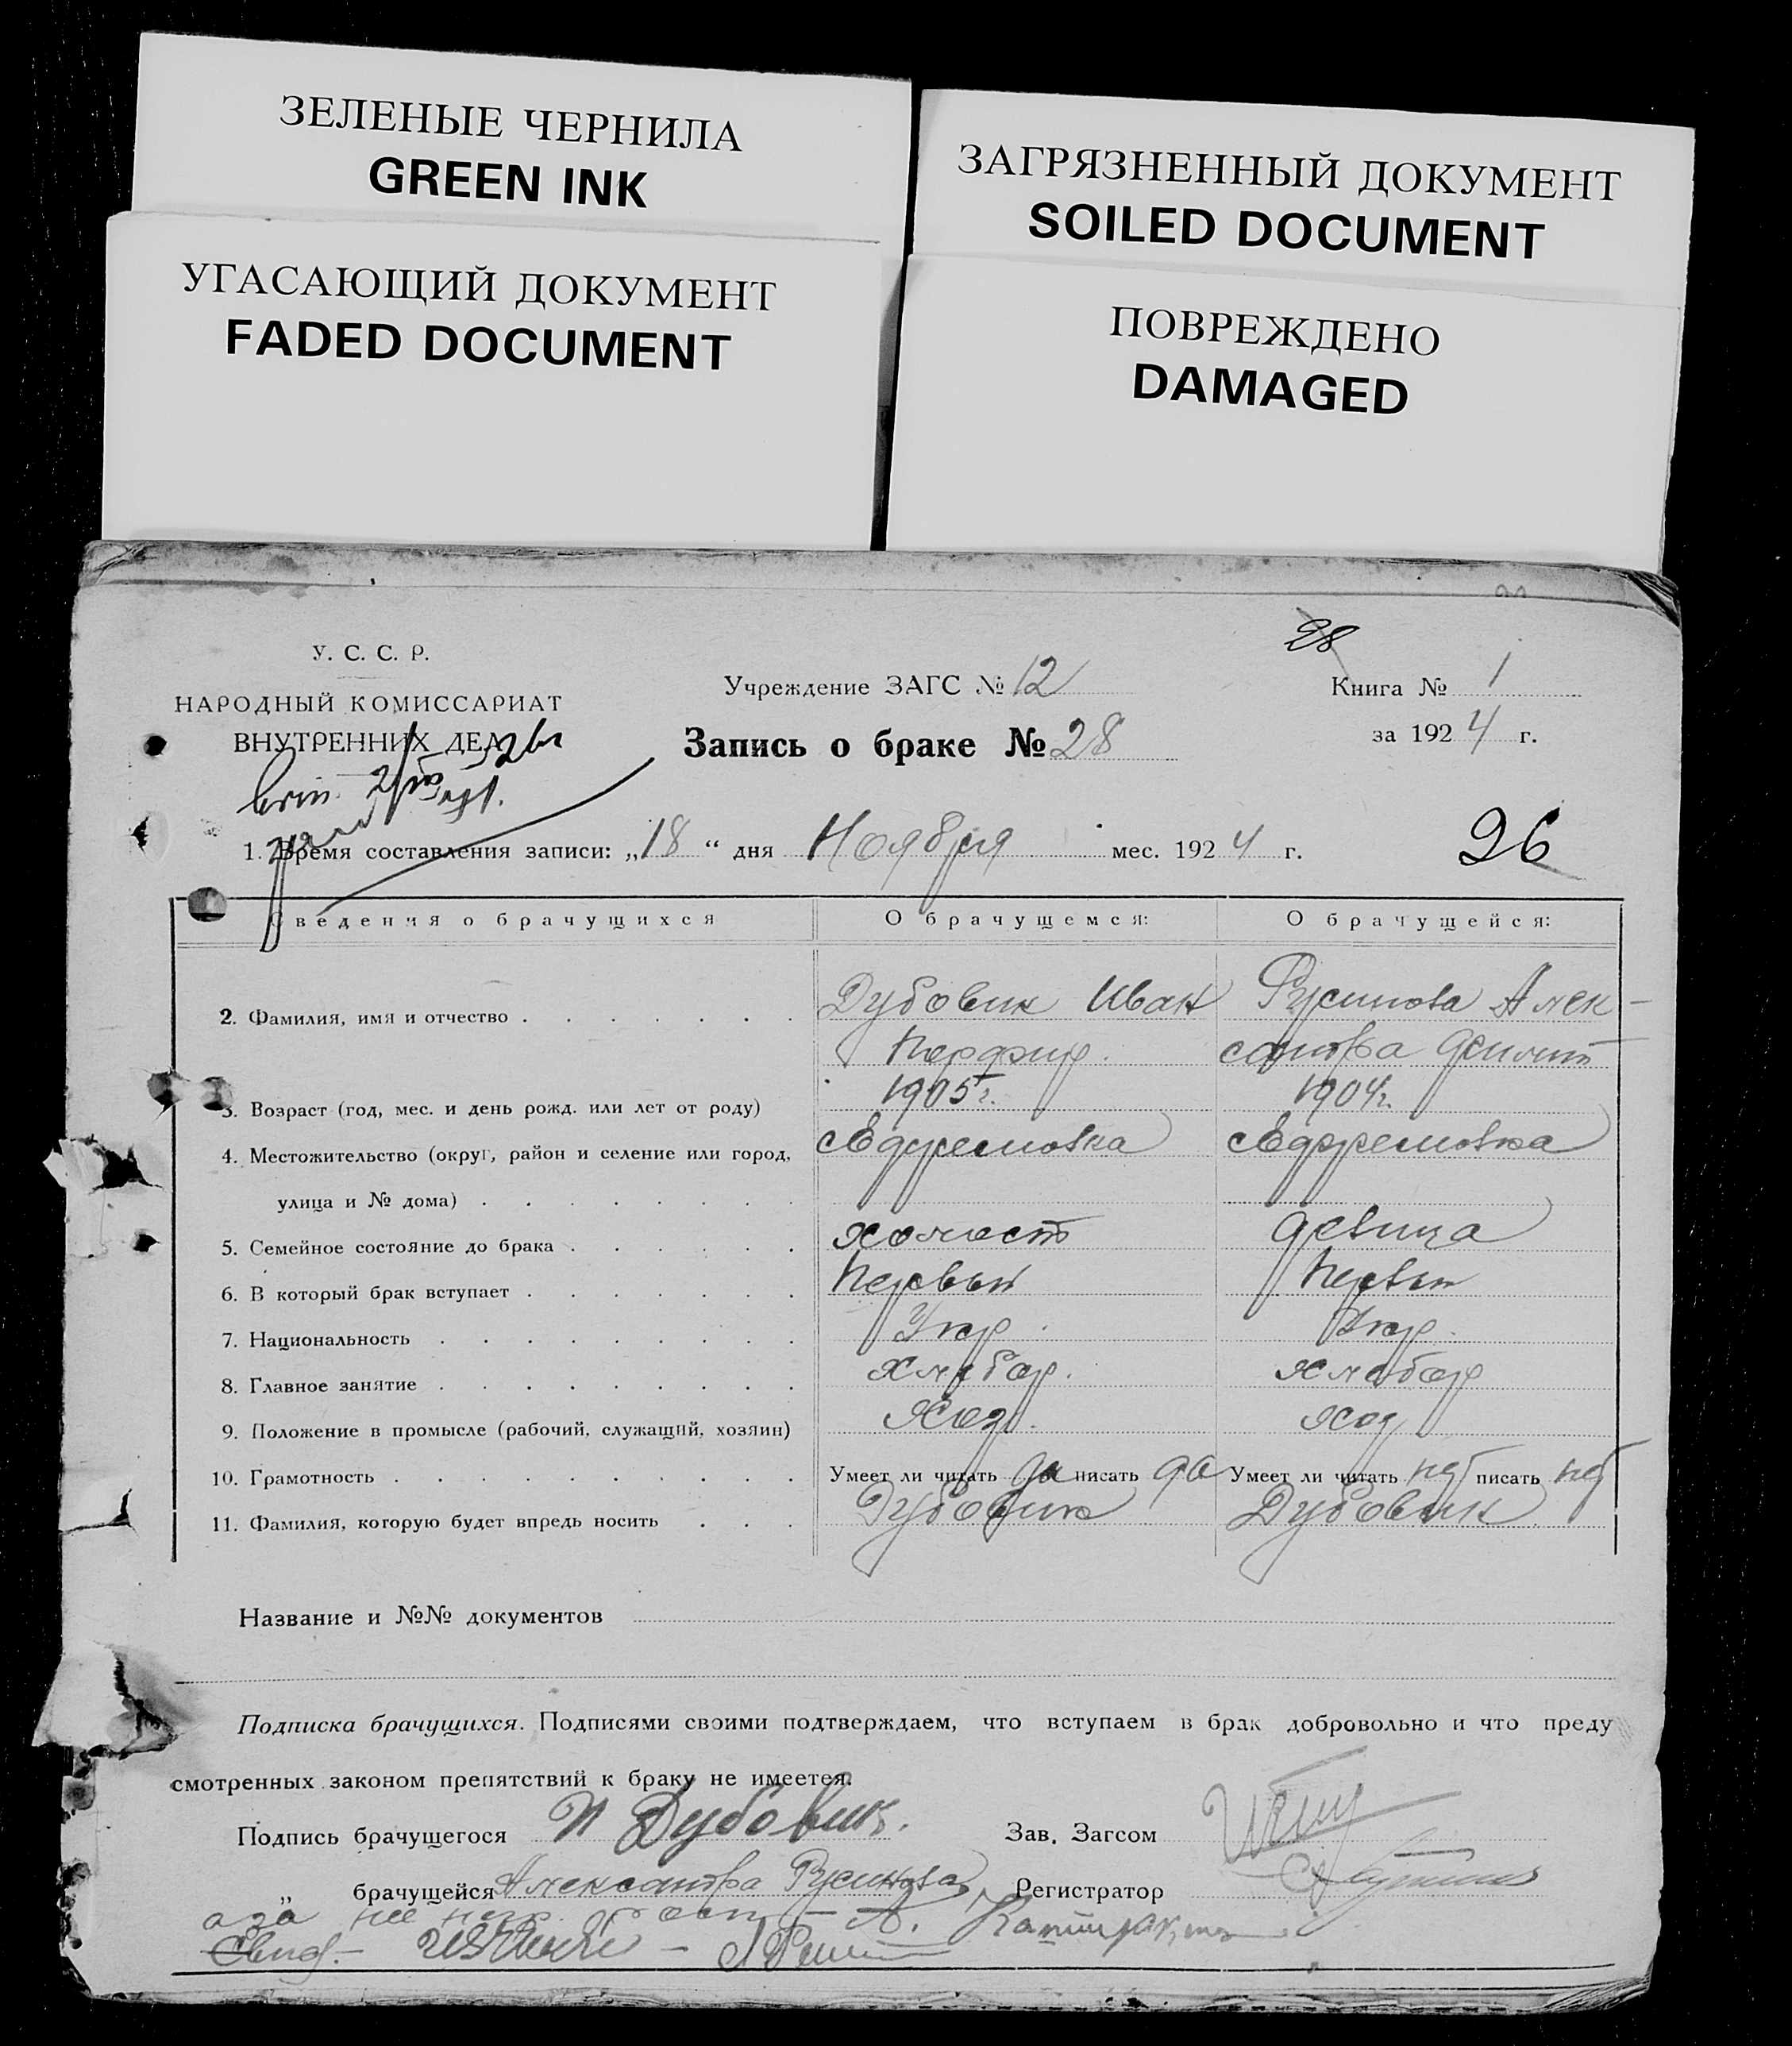 ЗЕЛЕНЫЕ ЧЕРНИЛА
GREEN INK
УГАСАЮЩИЙ ДОКУМЕНТ
FADED DOCUMENT
ЗАГРЯЗНЕННЫЙ ДОКУМЕНТ
SOILED DOCUMENT
ПОВРЕЖДЕНО
DAMAGED
28
У. С. С. Р.
НАРОДНЫЙ КОМИССАРИАТ
ВНУТРЕННИХ ДЕЛ
Учреждение ЗАГС № 12
Книга № 1
за 1924 г.
Запись о браке № 28
1. Время составления записи: „18“ дня Ноября мес. 1924 г.
26
Сведения о брачущихся О брачущемся: О брачущейся:
2. Фамилия, имя и отчество Дубовик Иван Русинова Алек-
Порфир. сантра
3. Возраст (год, мес. и день рожд. или лет от роду) 1905 г. 1904 г.
4. Местожительство (округ, район и селение или город, с Ефремовка с Ефремовка
улица и № дома)
5. Семейное состояние до брака холост девица
6. В который брак вступает Первый Первый
7. Национальность Укр. Укр.
8. Главное занятие Хлебор. Хлебор
9. Положение в промысле (рабочий, служащий, хозяин) Хоз. Хоз
10. Грамотность Умеет ли читать да писать да Умеет ли читать нет писать нет
11. Фамилия, которую будет впредь носить Дубовик Дубовик
Название и №№ документов
Подписка брачущихся. Подписями своими подтверждаем, что вступаем в брак добровольно и что преду
смотренных законом препятствий к браку не имеется.
Подпись брачущегося И Дубовик. Зав. Загсом
„ брачущейся Александра Русинова Регистратор
а за нее негр.
Свид. -